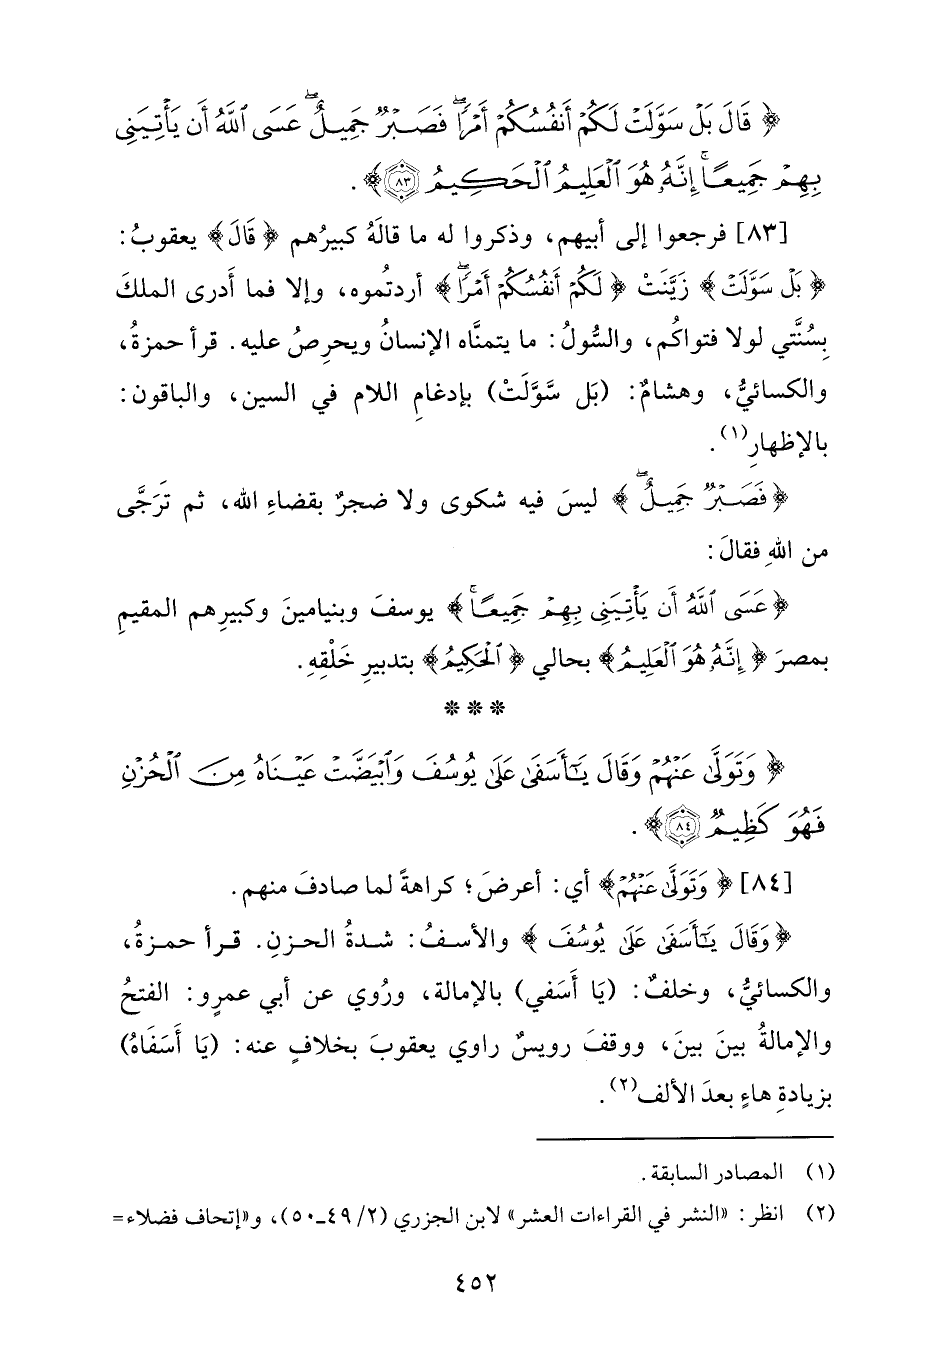 ﴿ قَالَ بَلْ سَوَّلَتْ لَكُمْ أَنفُسُكُمْ أَمْرًا ۖ فَصَبْرٌ جَمِيلٌ ۖ عَسَى ٱللَّهُ أَن يَأْتِيَنِى
بِهِمْ جَمِيعًا ۚ إِنَّهُۥ هُوَ ٱلْعَلِيمُ ٱلْحَكِيمُ ﴿٨٣﴾ ﴾.
[٨٣] فرجعوا إلى أبيهم، وذكروا له ما قالَهُ كبيرُهم ﴿ قَالَ ﴾ يعقوبُ:
﴿ بَلْ سَوَّلَتْ ﴾ زَيَّنَتْ ﴿ لَكُمْ أَنفُسُكُمْ أَمْرًا ۖ ﴾ أردتُموه، وإلا فما أَدرى الملكَ
بِسُنَّتي لولا فتواكُم، والسُّولُ: ما يتمنَّاه الإنسانُ ويحرِصُ عليه. قرأ حمزةُ،
والكسائيُّ، وهشامٌ: (بَل سَّوَّلَتْ) بإدغامِ اللام في السين، والباقون:
بالإظهارِ(١).
﴿ فَصَبْرٌ جَمِيلٌ ۖ ﴾ ليسَ فيه شكوى ولا ضجرٌ بقضاءِ الله، ثم تَرَجَّى
من اللهِ فقالَ:
﴿ عَسَى ٱللَّهُ أَن يَأْتِيَنِى بِهِمْ جَمِيعًا ۚ ﴾ يوسفَ وبنيامينَ وكبيرِهم المقيمِ
بمصرَ ﴿ إِنَّهُۥ هُوَ ٱلْعَلِيمُ ﴾ بحالي ﴿ ٱلْحَكِيمُ ﴾ بتدبيرِ خَلْقِهِ.
* * *
﴿ وَتَوَلَّىٰ عَنْهُمْ وَقَالَ يَـٰٓأَسَفَىٰ عَلَىٰ يُوسُفَ وَٱبْيَضَّتْ عَيْنَاهُ مِنَ ٱلْحُزْنِ
فَهُوَ كَظِيمٌ ﴿٨٤﴾ ﴾.
[٨٤] ﴿ وَتَوَلَّىٰ عَنْهُمْ ﴾ أي: أعرضَ؛ كراهةً لما صادفَ منهم.
﴿ وَقَالَ يَـٰٓأَسَفَىٰ عَلَىٰ يُوسُفَ ﴾ والأسفُ: شدةُ الحزنِ. قرأ حمزةُ،
والكسائيُّ، وخلفٌ: (يَا أَسَفي) بالإمالة، ورُوي عن أبي عمرٍو: الفتحُ
والإمالةُ بينَ بينَ، ووقفَ رويسٌ راوي يعقوبَ بخلافٍ عنه: (يَا أَسَفَاهُ)
بزيادةِ هاءٍ بعدَ الألف(٢).
(١) المصادر السابقة.
(٢) انظر: «النشر في القراءات العشر» لابن الجزري (٢/ ٤٩-٥٠)، و«إتحاف فضلاء=
٤٥٢